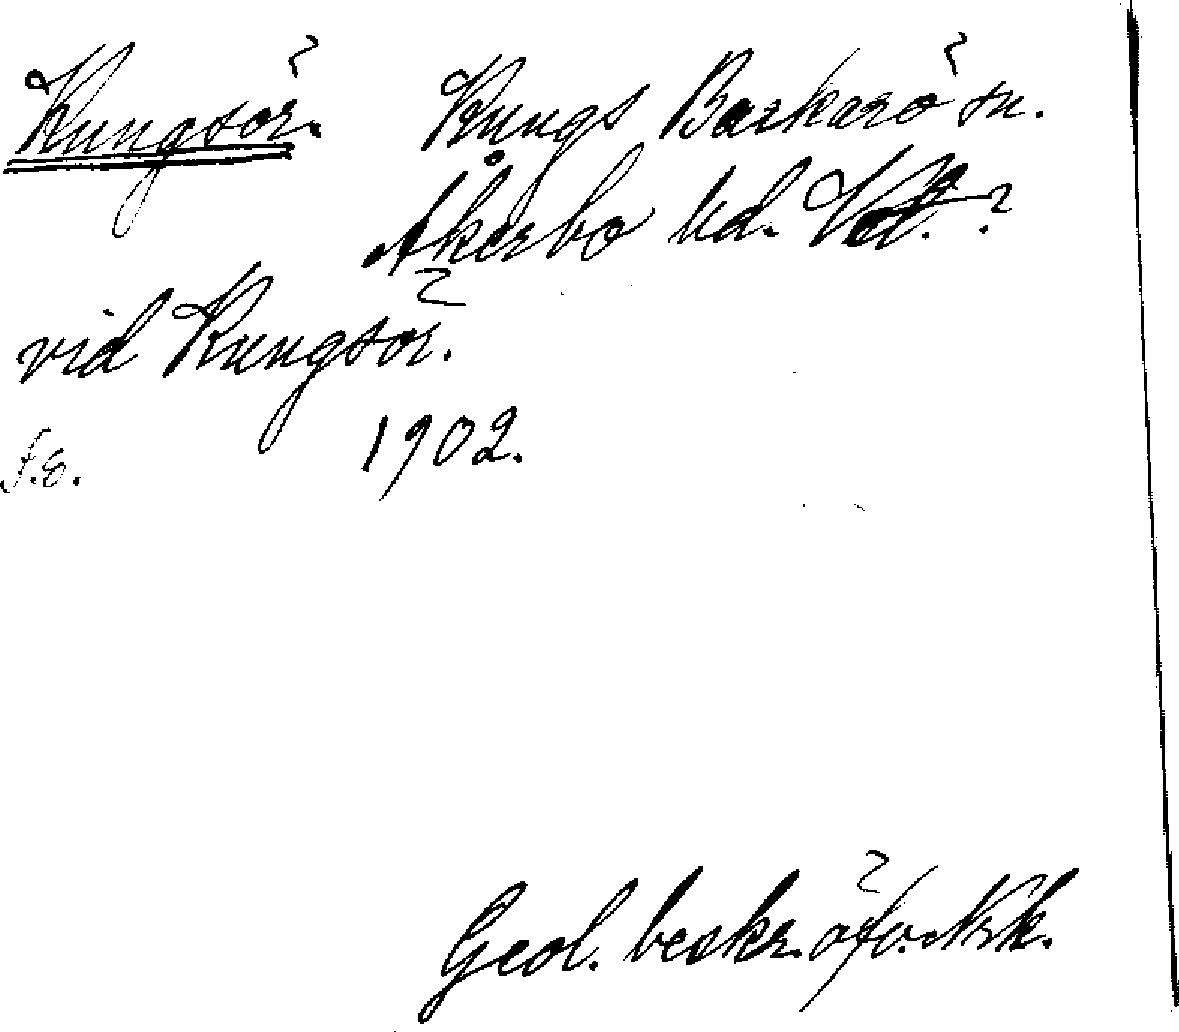 Kungsör. Kungs Barkarö sn.
Åkerbo hd. Vstm.?
vid Kungsör.
f.ö. 1902.
Geol. beskr. öfv.